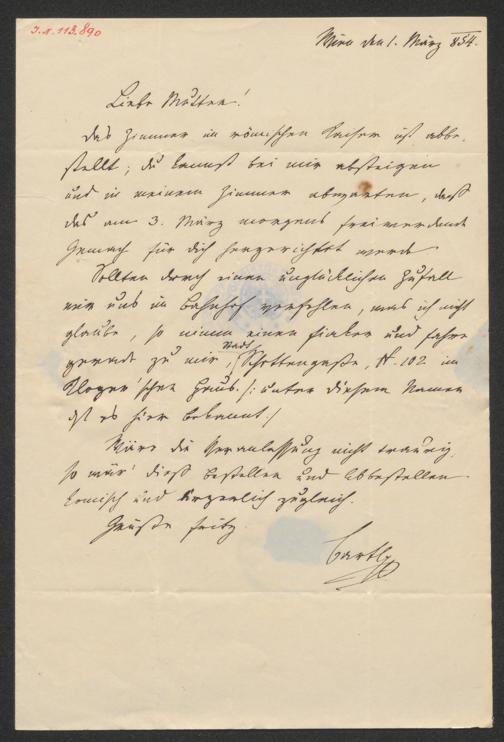 I.N. 113.890
Wien den 1. März 854.
Liebe Mutter!
Das Zimmer im römischen Kaiser ist abbe-
stellt; du kannst bei mir absteigen
und in meinem Zimmer abwarten, daß
das am 3. März morgens freiwerdende
Gemach für dich hergerichtet werde
Sollten durch einen unglücklichen Zufall
wir uns im Bahnhof verfehlen, was ich nicht
glaube, so nimm einen Fiaker und fahre
gerade zu mir, Stadt, Schottengaße, N. 102 im
Kloger'schen Haus. /: unter diesem Namen
ist es hier bekannt :/
Wäre die Veranlassung nicht traurig,
so wär' dieß Bestellen und Abbestellen
komisch und ärgerlich zugleich.
Grüße Fritz